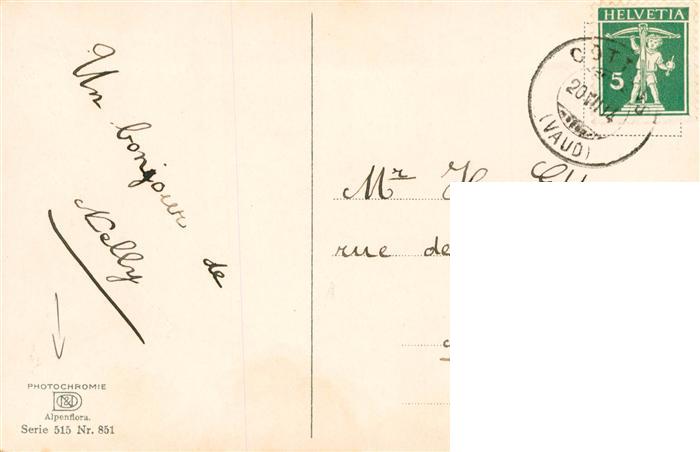 Un bonjour de
Nelly
PHOTOCHROMIE
Alpenflora.
Serie 515 Nr. 851
HELVETIA
5
(VAUD)
Mr H.
rue de